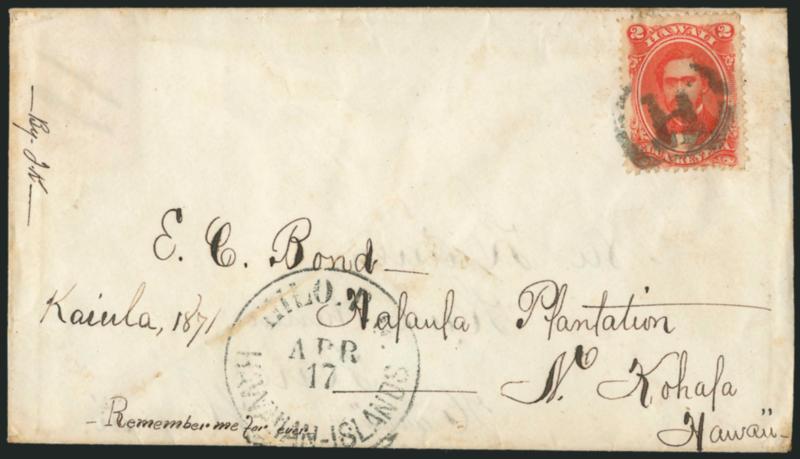 2 HAWAII 2
H I
By. J K
E. C. Bond
Kaiula, 1871
Halaula Plantation
N. Kohala
Hawaii
Remember me for ever
HILO. H.
APR
17
HAWAIIAN-ISLANDS